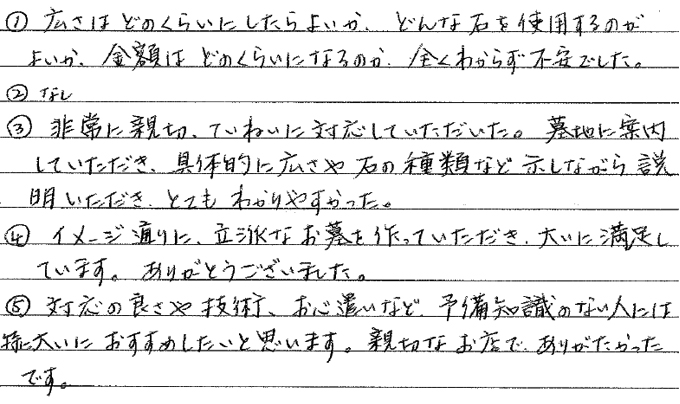 ① 広さはどのくらいにしたらよいか、どんな石を使用するのが
よいか、金額はどのくらいになるのか、全くわからず不安でした。
② なし
③ 非常に親切、ていねいに対応していただいた。墓地に案内
していただき、具体的に広さや石の種類など示しながら説
明いただき、とてもわかりやすかった。
④ イメージ通りに、立派なお墓を作っていただき、大いに満足し
ています。ありがとうございました。
⑤ 対応の良さや技術、お心遣いなど、予備知識のない人には
特に大いにおすすめしたいと思います。親切なお店で、ありがたかった
です。